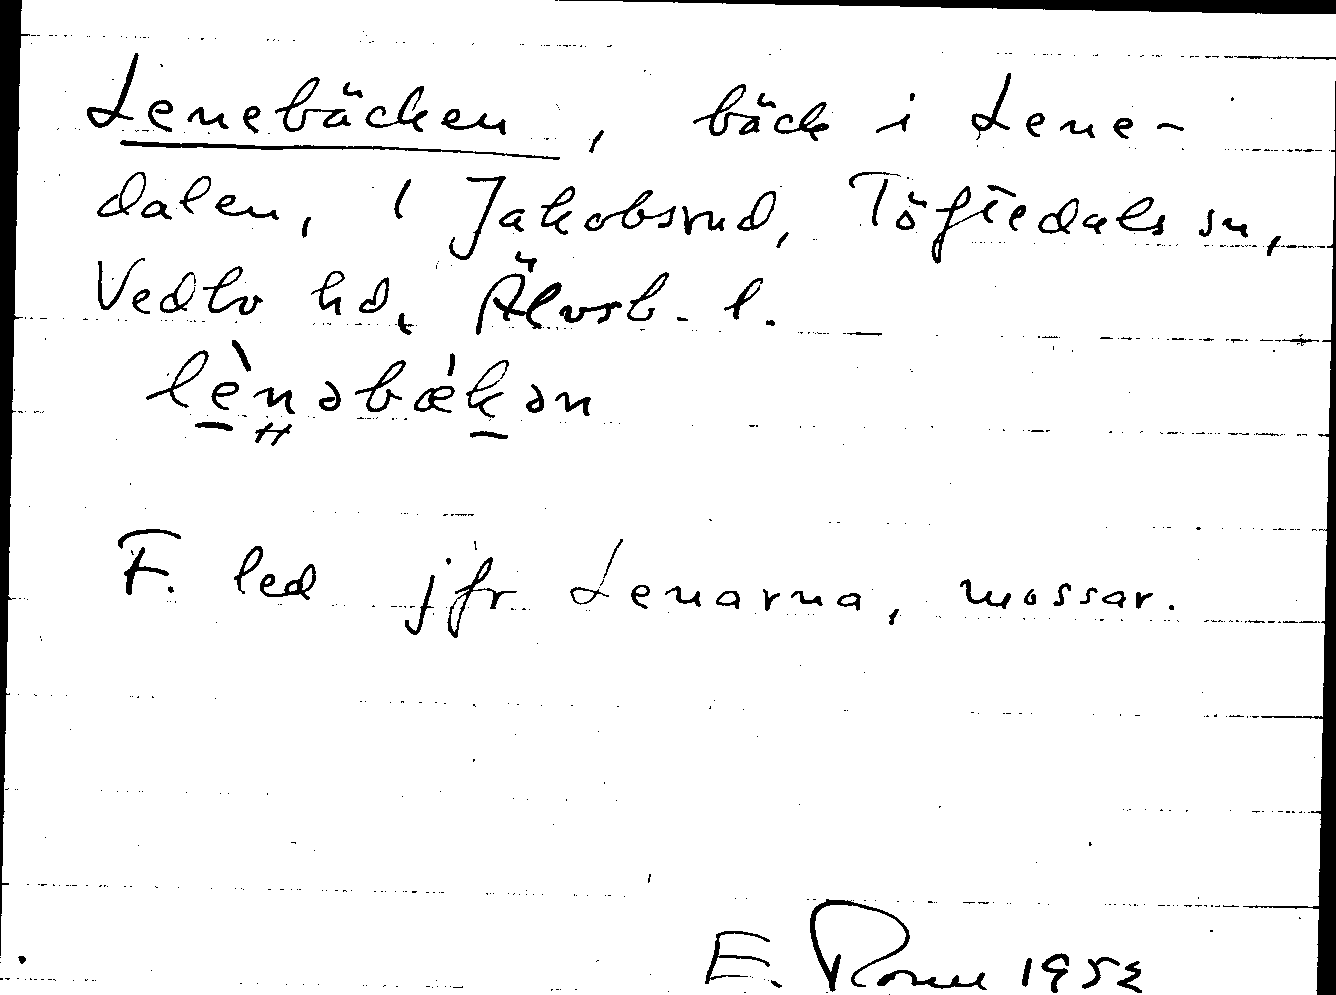 Lenebäcken, bäck i Lene-
dalen, 1 Jakobsrud, Töftedals sn,
Vedbo hd, Älvsb. l.
lènəbǽkən
F. led jfr Lenarna, mossar.
E. 1952